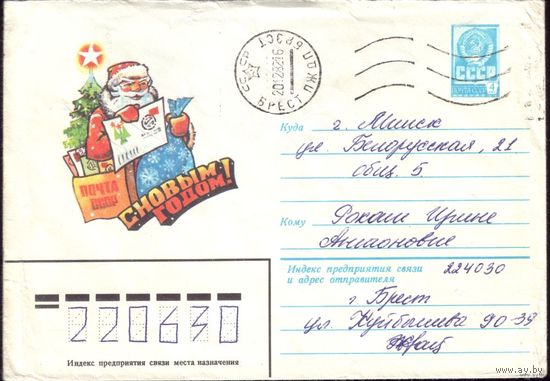 СССР БРЭСТ ПОЖ
20128216
БРЕСТ
СССР
ПОЧТА СССР 4
ПОЧТА
СССР
С НОВЫМ
ГОДОМ!
Куда г. Минск
ул. Белорусская, 21
общ. 5
Кому Ирине
Индекс предприятия связи
и адрес отправителя
224030
г Брест
ул. Куйбышева 90-39
220630
Индекс предприятия связи места назначения
www.ay.by